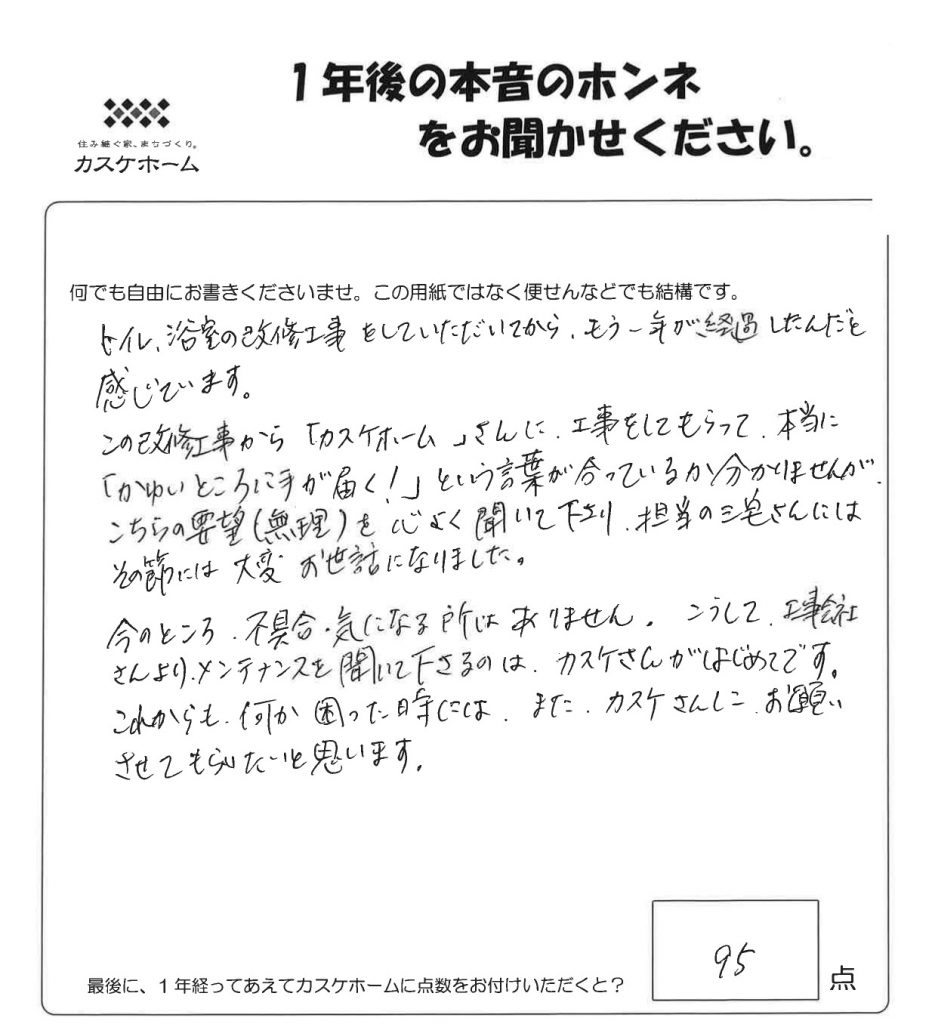 1年後の本音のホンネ
をお聞かせください。
住み継ぐ家、まちづくり。
カスケホーム
何でも自由にお書きくださいませ。この用紙ではなく便せんなどでも結構です。
トイレ、浴室の改修工事をしていただいてから、もう一年が経過したんだと
感じています。
この改修工事から「カスケホーム」さんに、工事をしてもらって、本当に
「かゆいところに手が届く!」という言葉が合っているか分かりませんが、
こちらの要望(無理)を心よく聞いて下さり、担当の三宅さんには
その節には大変お世話になりました。
今のところ、不具合・気になる所はありません。こうして、工事会社
さんより、メンテナンスを聞いて下さるのは、カスケさんがはじめてです。
これからも、何か困った時には、また、カスケさんに、お願い
させてもらいたいと思います。
95
最後に、1年経ってあえてカスケホームに点数をお付けいただくと?
点